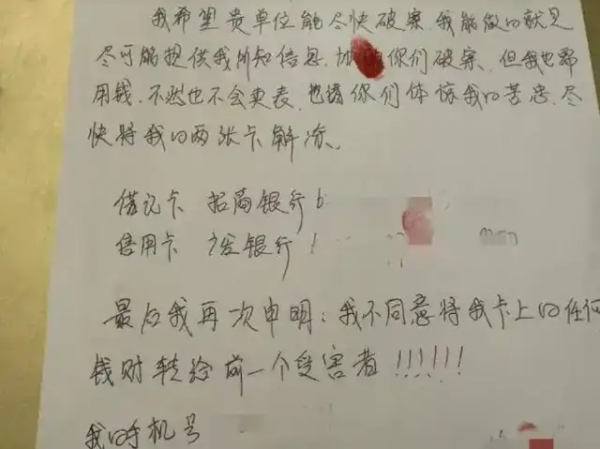 我希望贵单位能尽快破案,我能做的就是
尽可能提供我所知信息,加 你们破案、但我也都
用钱,不然也不会卖表,也请你们体谅我的苦衷,尽
快将我的两张卡解冻、
借记卡 招商银行 6
信用卡 广发银行
最后我再次申明:我不同意将我卡上的任何
钱财转给前一个受害者!!!!!!
我的手机号